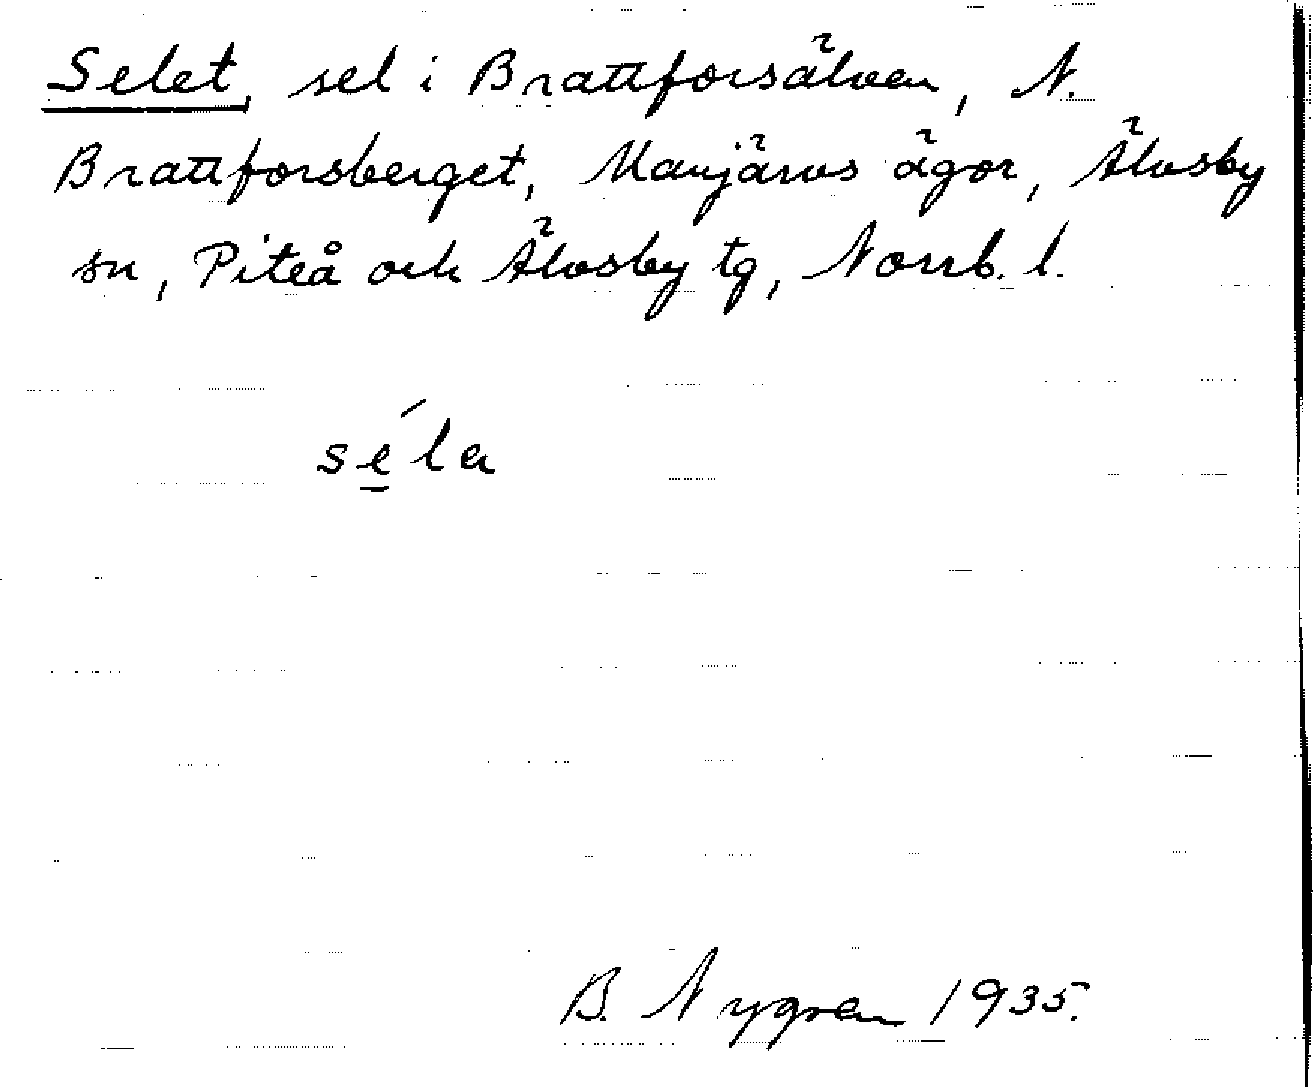 Selet, sel i Brattforsälven, N.
Brattforsberget, Manjärvs ägor, Älvsby
sn, Piteå och Älvsby tg, Norrb. l.
se̲´la
B. Nygren 1935.